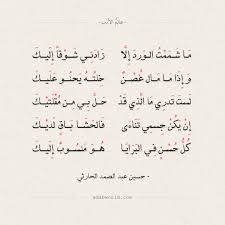 - عَالَمُ الأَدَب -
مَا شَمَمْتُ الوَردَ إِلَّا زَادَنِي شَوْقًا إِلَيكَ
وَ إِذَا مَا مَالَ غُصْنٌ خِلْتُهُ يَحْنُو عَلَيكَ
لَستَ تَدرِي مَا الَّذِي قَد حَلَّ بِي مِن مُقْلَتَيْكَ
إِن يَكُنْ جِسمِي تَنَاءَى فَالحَشَا بَاقٍ لَدَيكَ
كُلُّ حُسْنٍ فِي البَرَايَا هُوَ مَنسُوبٌ إِلَيكَ
- حسين عبد الصمد الحارثي -
adabworld.com